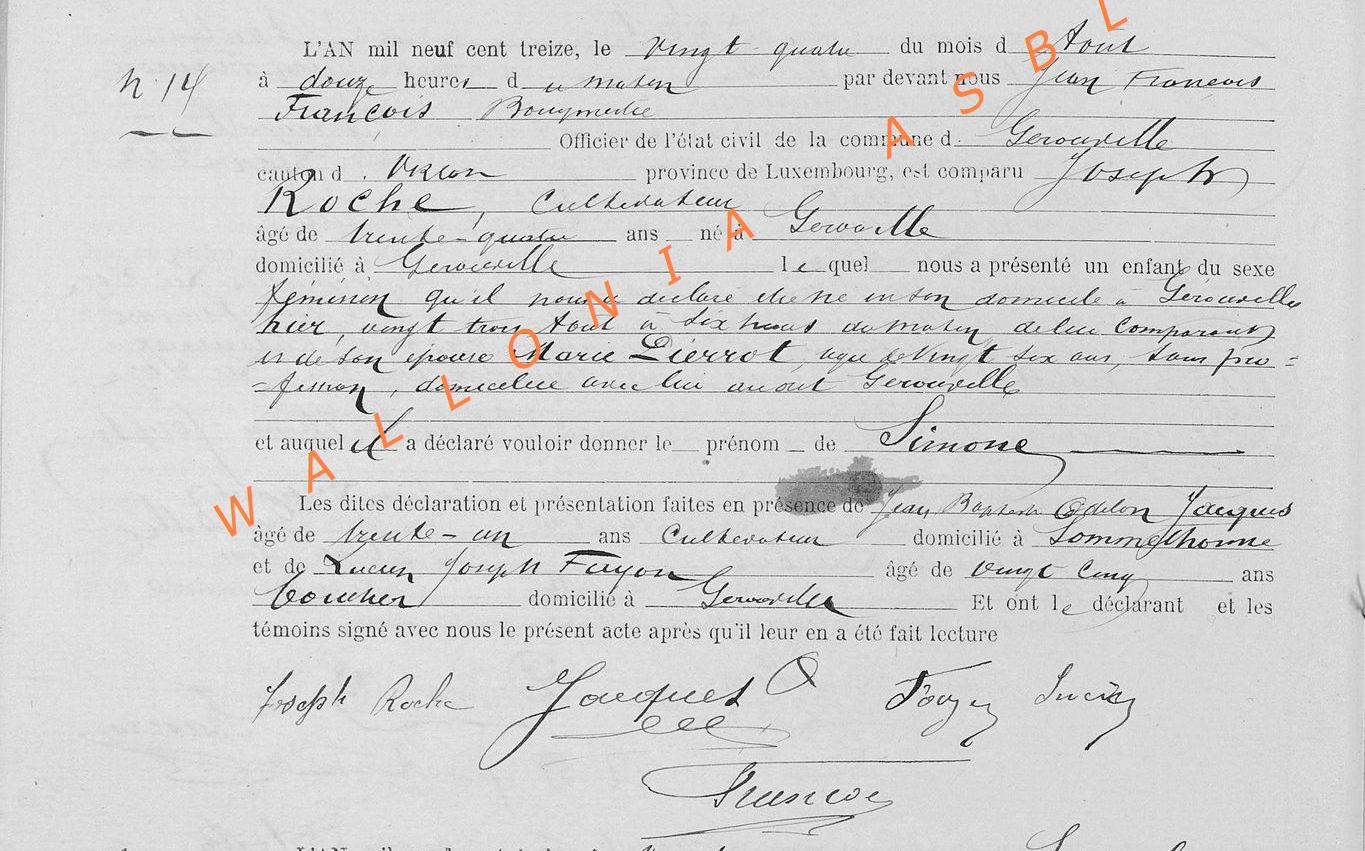 L'AN mil neuf cent treize, le Vingt quatre du mois d Août
n° 14
à douze heures du matin par devant nous Jean Francois
François
Officier de l'état civil de la commune d. Gerouville
canton d. Virton province de Luxembourg, est comparu Joseph
Roche, Cultivateur
âgé de trente-quatre ans né à Gerouville
domicilié à Gerouville le quel nous a présenté un enfant du sexe
féminin qu'il nous a déclaré être né en son domicile à Gérouville
hier, vingt trois Août à six heures du matin de lui Comparant
et de son épouse Marie Pierrot, agée de vingt six ans, sans pro=
=fession, domiciliée avec lui audit Gerouville
et auquel il a déclaré vouloir donner le prénom de Simone
Les dites déclaration et présentation faites en présence de Jean Baptiste Odelon Jacques
âgé de trente-un ans Cultivateur domicilié à Sommethonne
et de Lucien Joseph Foyon âgé de vingt cinq ans
domicilié à Gerouville Et ont le déclarant et les
témoins signé avec nous le présent acte après qu'il leur en a été fait lecture
Joseph Roche Jacques O Lucien
WALLONIA ASBL